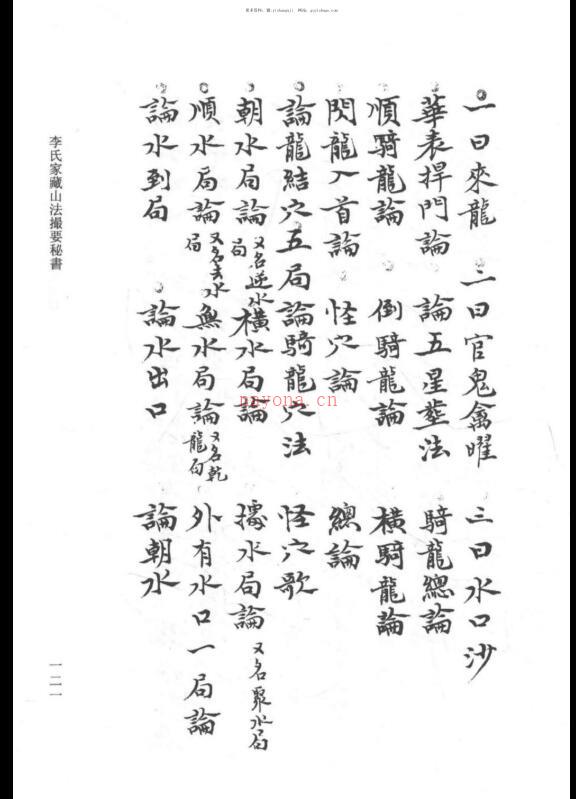 一曰來龍 二曰官鬼禽曜 三曰水口沙
華表捍門論 論五星塟法 騎龍總論
順騎龍論 倒騎龍論 橫騎龍論
閃龍入首論 怪穴論 總論
論龍結穴五局 論騎龍穴法 怪穴歌
朝水局論 又名逆水局 橫水局論 據水局論 又名聚水局
順水局論 又名去水局 無水局論 又名乾龍局 外有水口一局論
論水到局 論水出口 論朝水
李氏家藏山法撮要秘書
一二一
nayona.cn